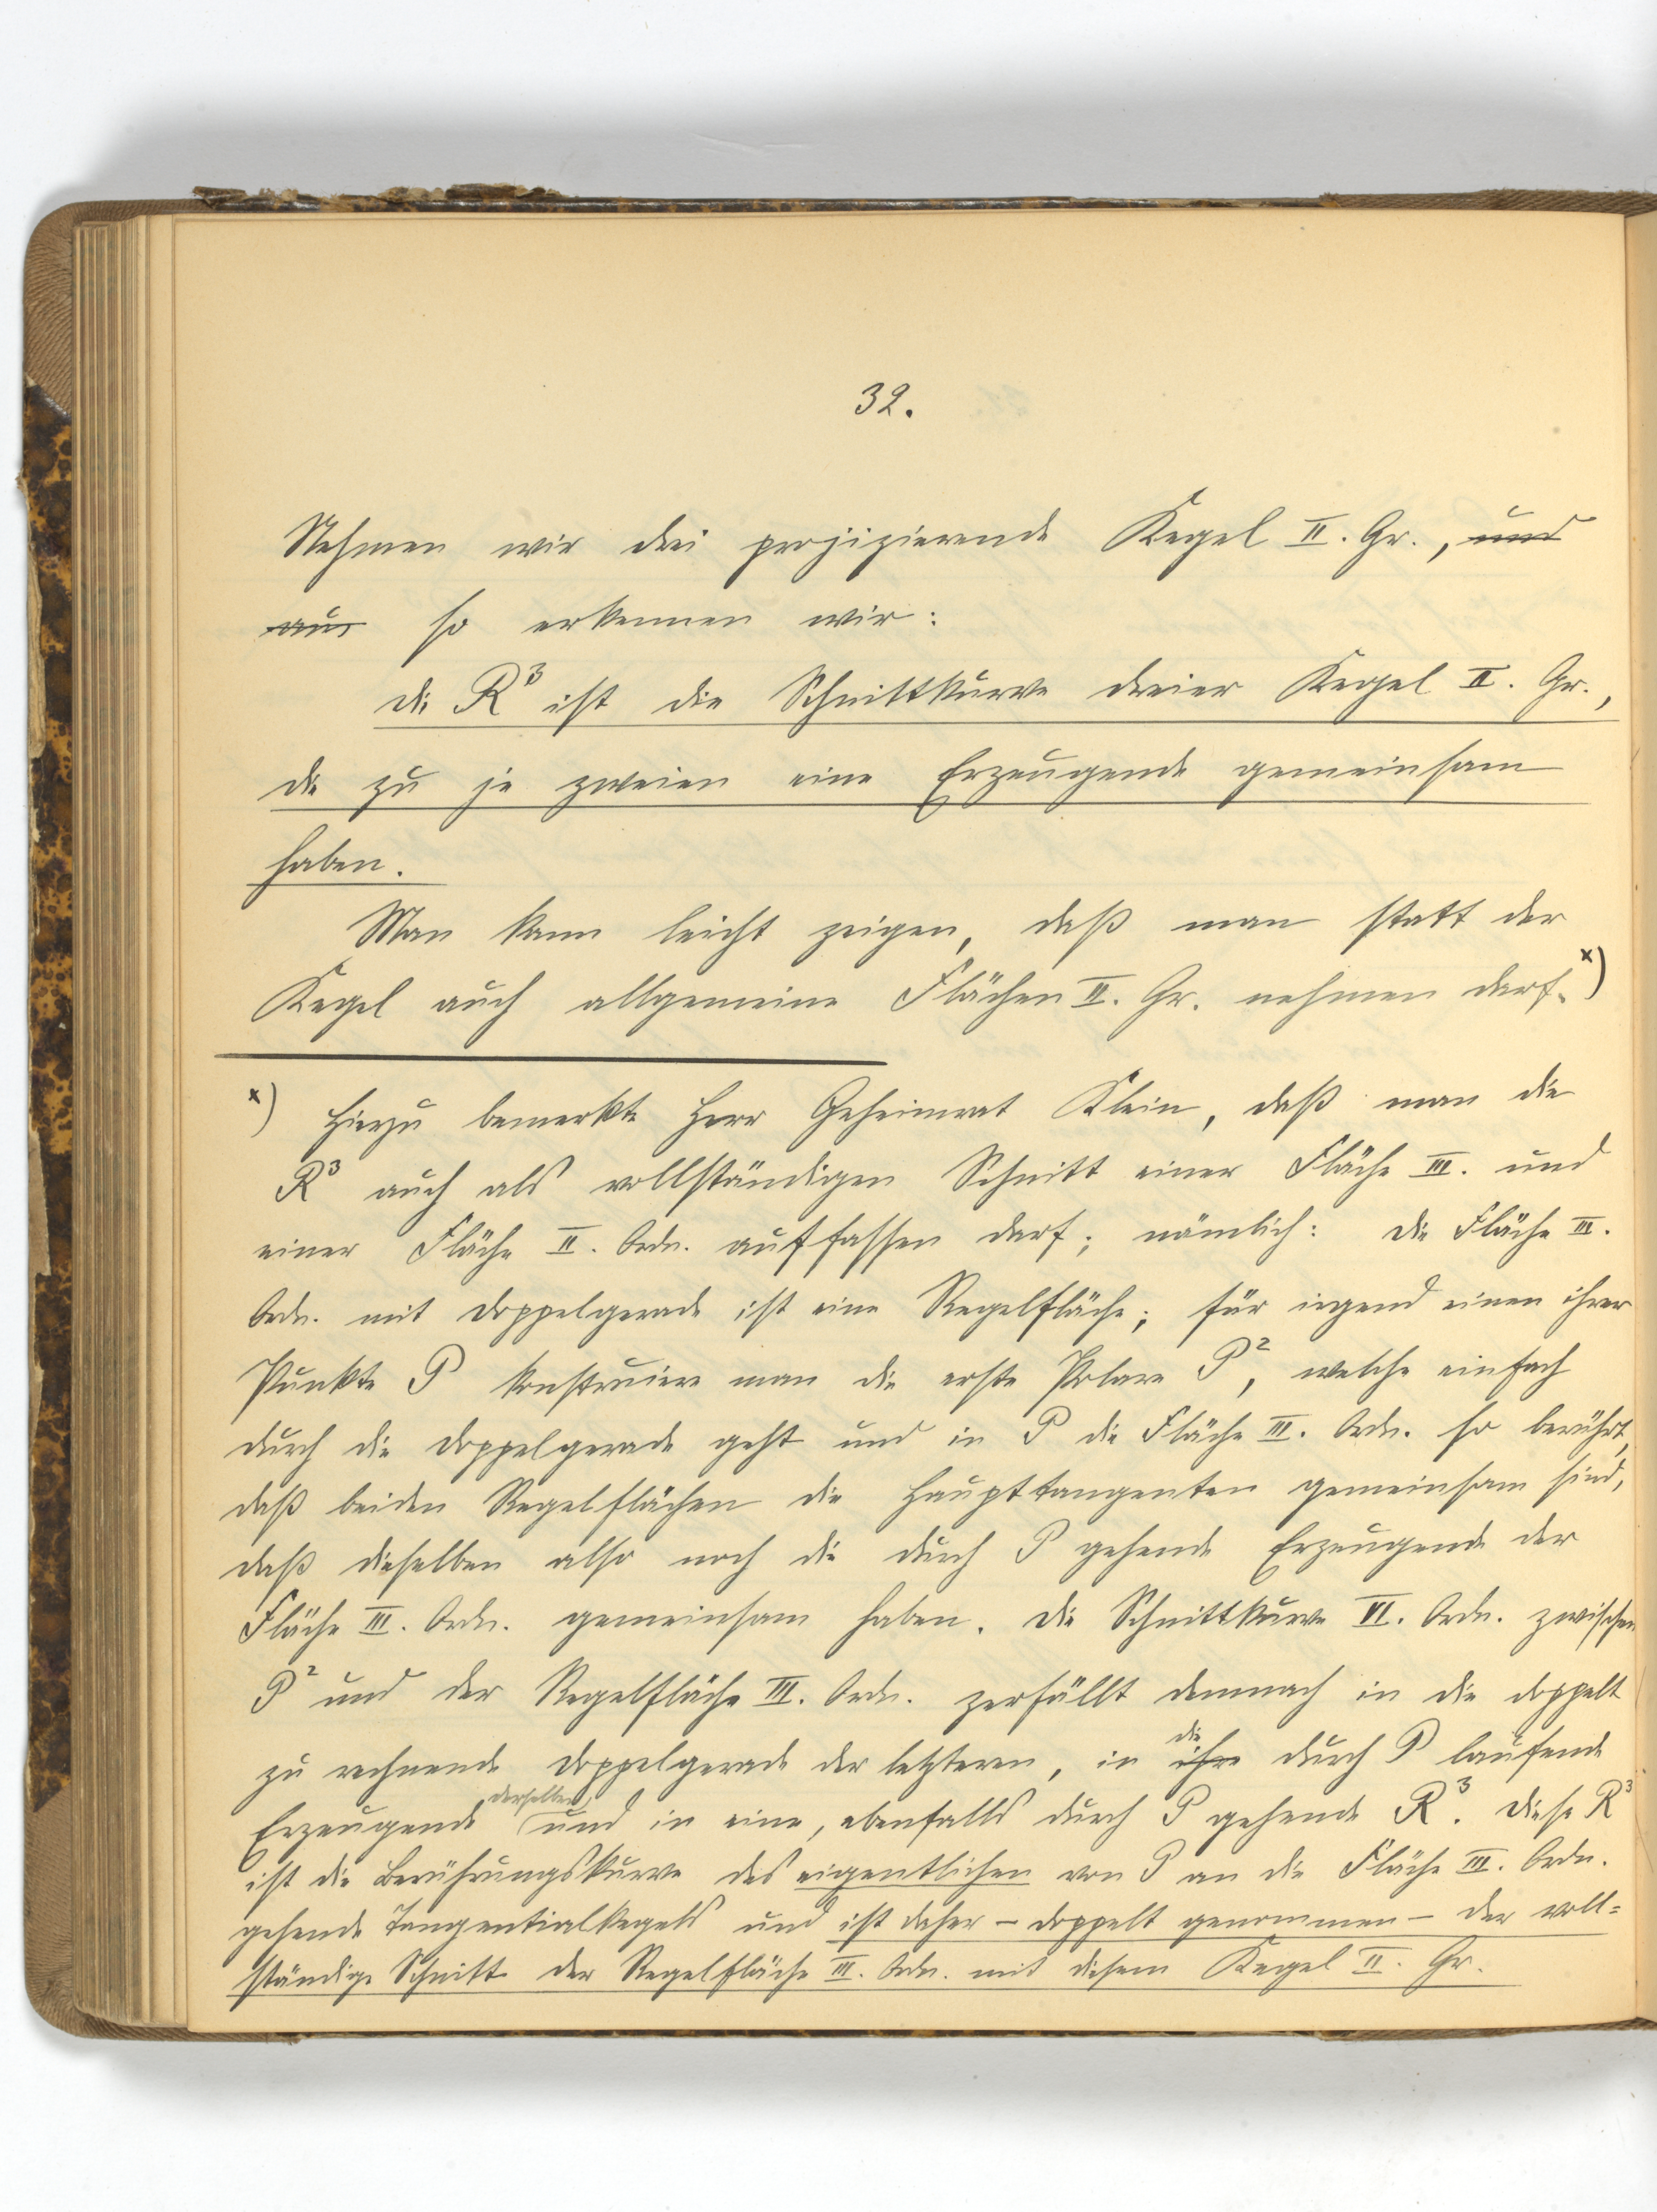 32.
Nehmen wir drei projizierende Kegel II. Gr., und
aus so erkennen wir:
die R³ ist die Schnittkurve dreier Kegel II. Gr.,
die zu je zweien eine Erzeugende gemeinsam
haben.
Man kann leicht zeigen, daß man statt der
Kegel auch allgemeine Flächen II. Gr. nehmen darf.x)
x) Hierzu bemerkte Herr Geheimrat Klein, daß man die
R³ auch als vollständigen Schnitt einer Fläche III. und
einer Fläche II. Ordn. auffassen darf; nämlich: Die Fläche III.
Ordn. mit Doppelgerade ist eine Regelfläche; für irgend einen ihrer
Punkte P konstruiere man die erste Polare P², welche einfach
durch die Doppelgerade geht und in P die Fläche III. Ordn. so berührt,
daß beiden Regelflächen die Haupttangenten gemeinsam sind,
daß dieselben also noch die durch P gehende Erzeugende der
Fläche III. Ordn. gemeinsam haben. Die Schnittkurve VI. Ordn. zwischen
P² und der Regelfläche III. Ordn. zerfällt demnach in die doppelt
zu rechnende Doppelgerade der letzteren, in ihre die durch P laufende
Erzeugende derselben und in eine, ebenfalls durch P gehende R³. Diese R³
ist die Berührungskurve des eigentlichen von P an die Fläche III. Ordn.
gehende Tangentialkegels und ist daher – doppelt genommen – der voll=
ständige Schnitt der Regelfläche III. Ordn. mit diesem Kegel II. Gr.